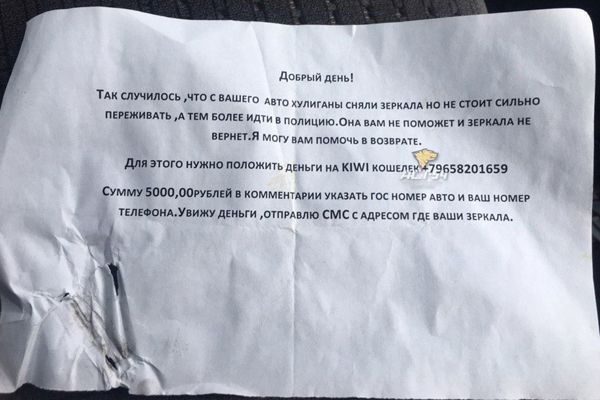 Добрый день!
Так случилось ,что с вашего авто хулиганы сняли зеркала но не стоит сильно
переживать ,а тем более идти в полицию.Она вам не поможет и зеркала не
вернет.Я могу вам помочь в возврате.
Для этого нужно положить деньги на KIWI кошелек +79658201659
Сумму 5000,00рублей в комментарии указать гос номер авто и ваш номер
телефона.Увижу деньги ,отправлю СМС с адресом где ваши зеркала.